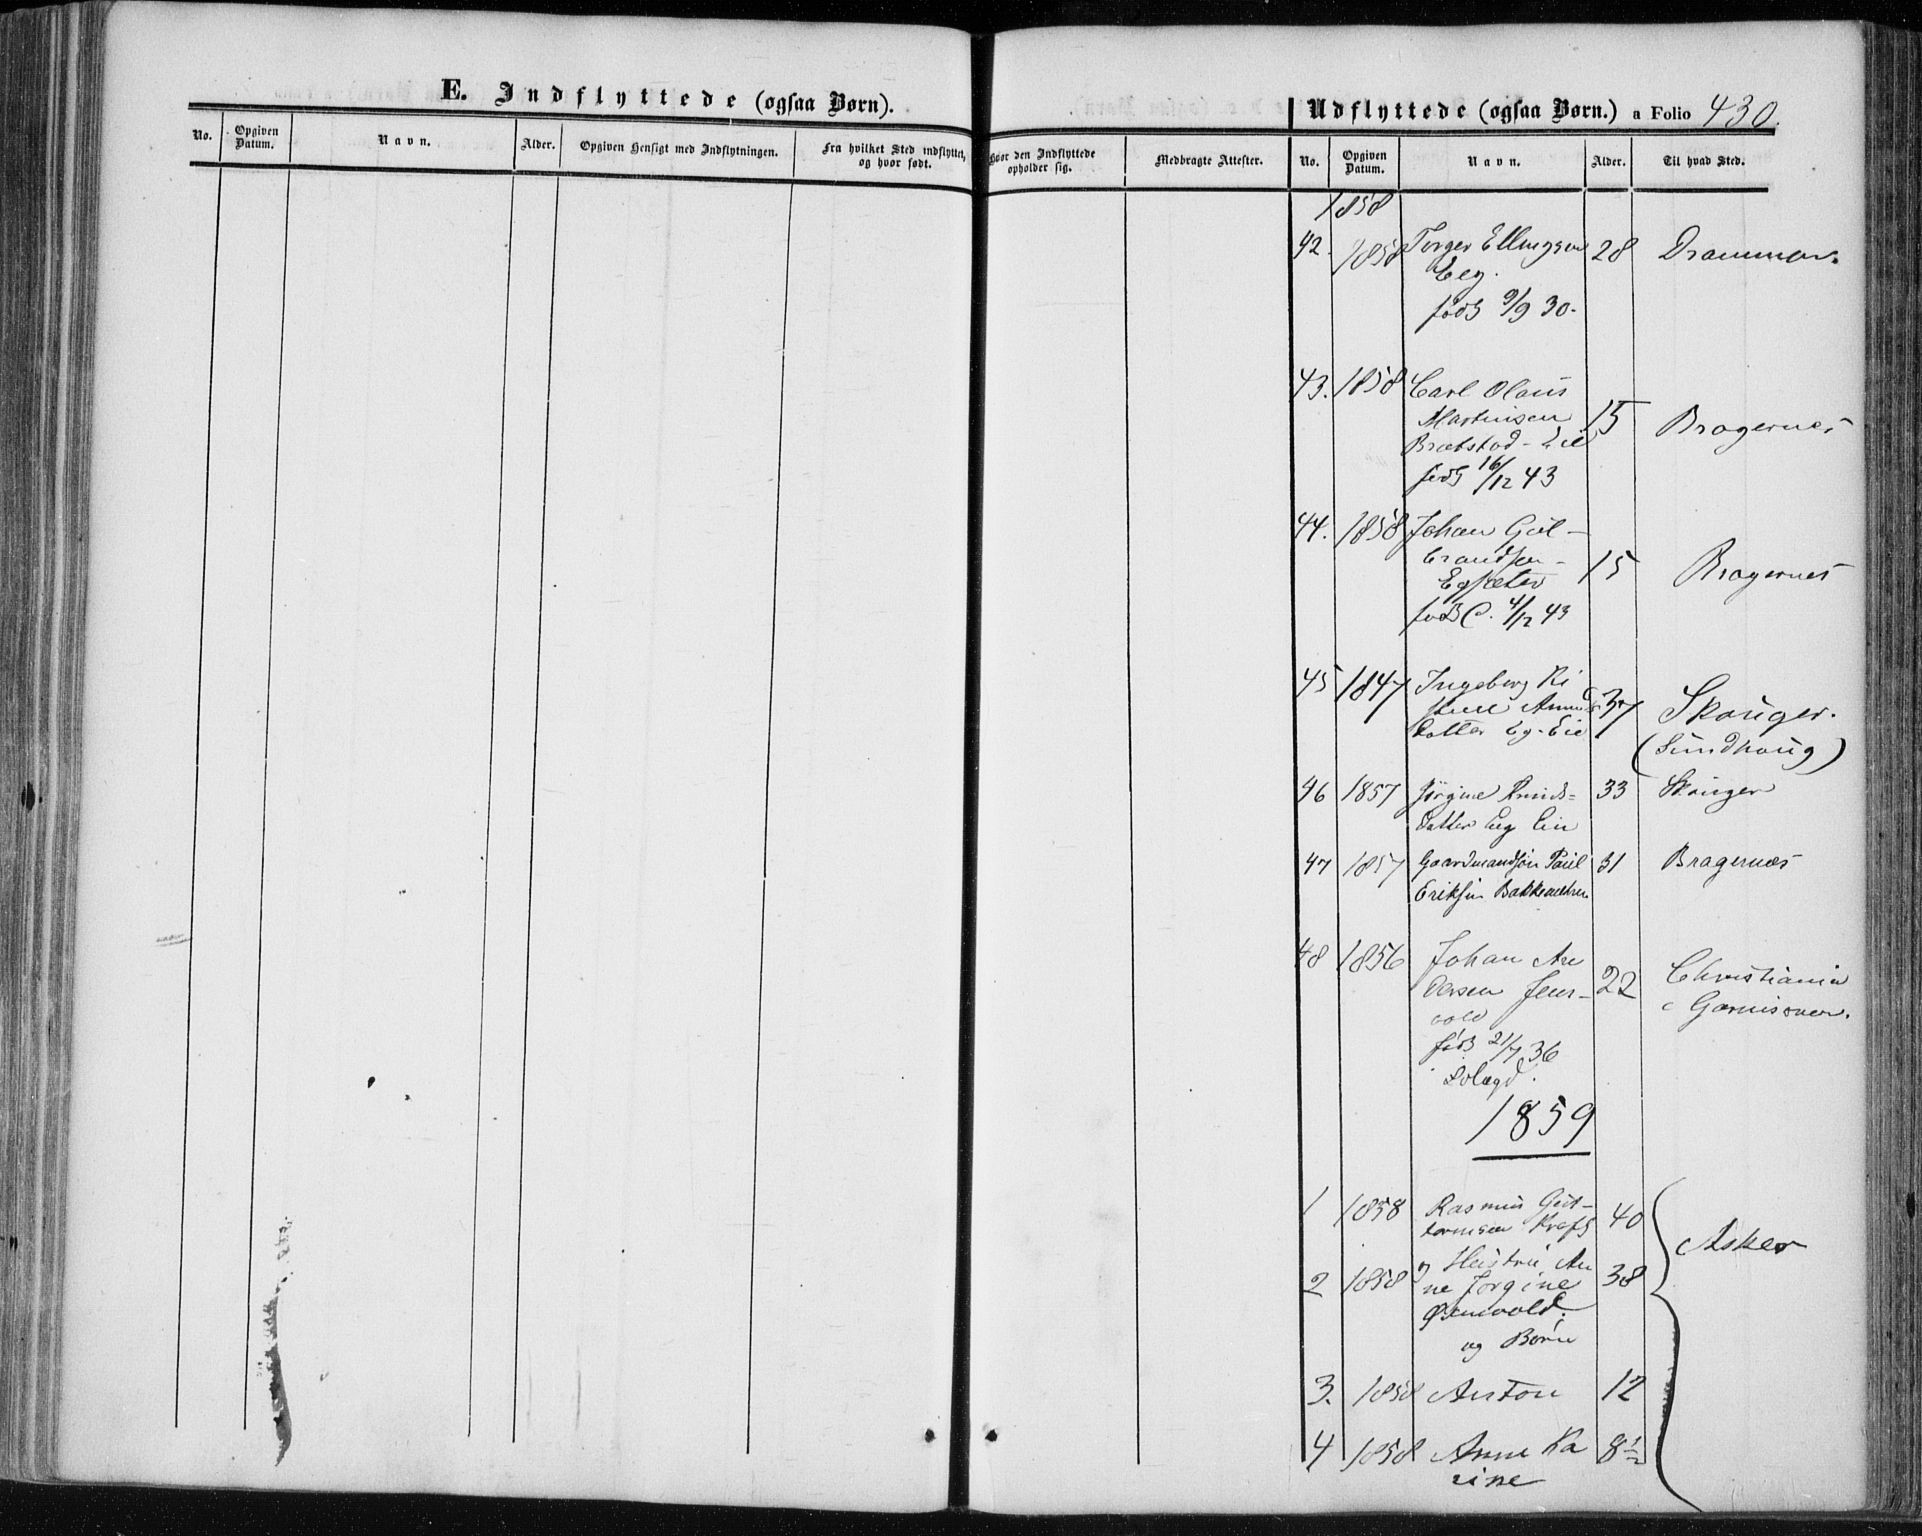 E. Indflyttede (ogsaa Børn).
Udflyttede (ogsaa Børn.) a Folio 430.
No. Opgiven Datum. Navn. Alder. Opgiven Hensigt med Indflytningen. Fra hvilket Sted indflyttet, og hvor født. Hvor den Indflyttede opholder sig. Medbragte Attester. No. Opgiven Datum. Navn. Alder. Til hvad Sted.
1858
42. 1858 Torger Ellingsen 28 Drammen.
Eeg.
født 9/9 30.
43. 1858 Carl Olaus
Martinsen 15 Bragernes
Eie
født 16/12 43
44. 1858 Johan Gul-
brandsen 15 Bragernes
Egsæter
født C. 4/12 43
45 1847 Ingeborg Ki
stine 37 Skouger.
datter Eg. Eie (Sundhoug)
46 1857 Jørgine 33 Skouger
datter Eeg Eie
47 1857 Gaardmandssøn Paul 31 Bragernæs
Eriksen
48 1856 Johan An
dersen 22 Christiania
Garnison.
født 21/7 36
1859
1 1858 Rasmus Gut-
tormsen Kraft 40
Asker
2 1858 og Hustru An
ne Jørgine 38
og Børn
3. 1858 Anton 12
4 1858 Anne Ka 8½
rine